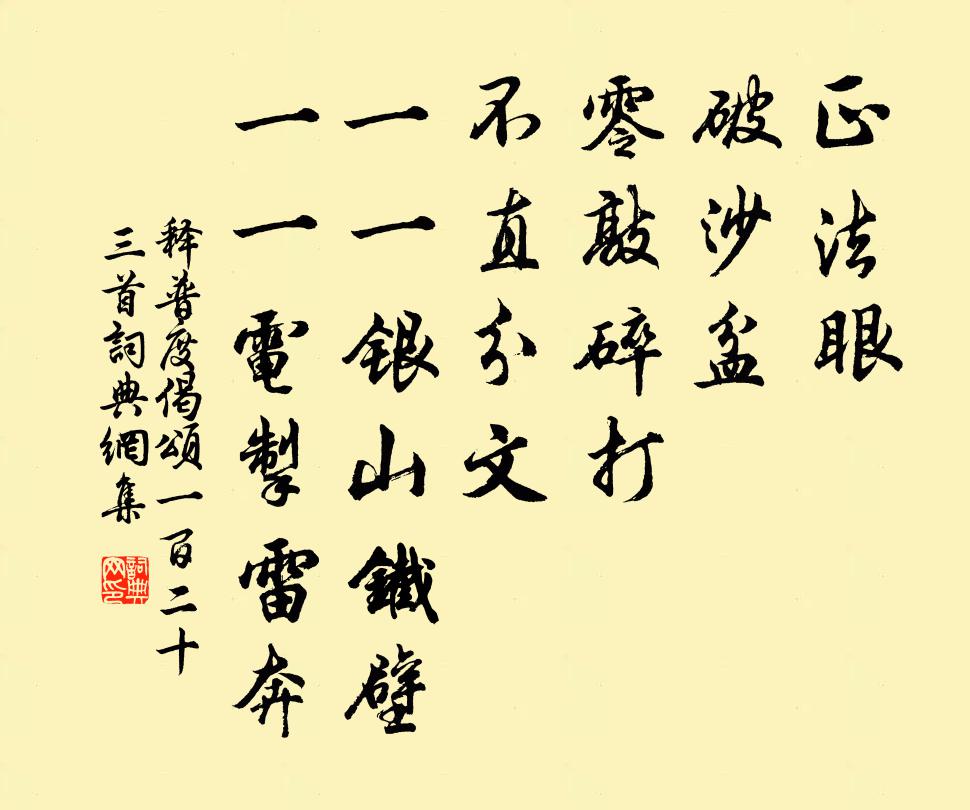 正法眼
破沙盆
零敲碎打
不直分文
一一銀山鐵壁
一一電掣雷奔
释普度偈頌一百二十
三首詞典網集
詞典网印